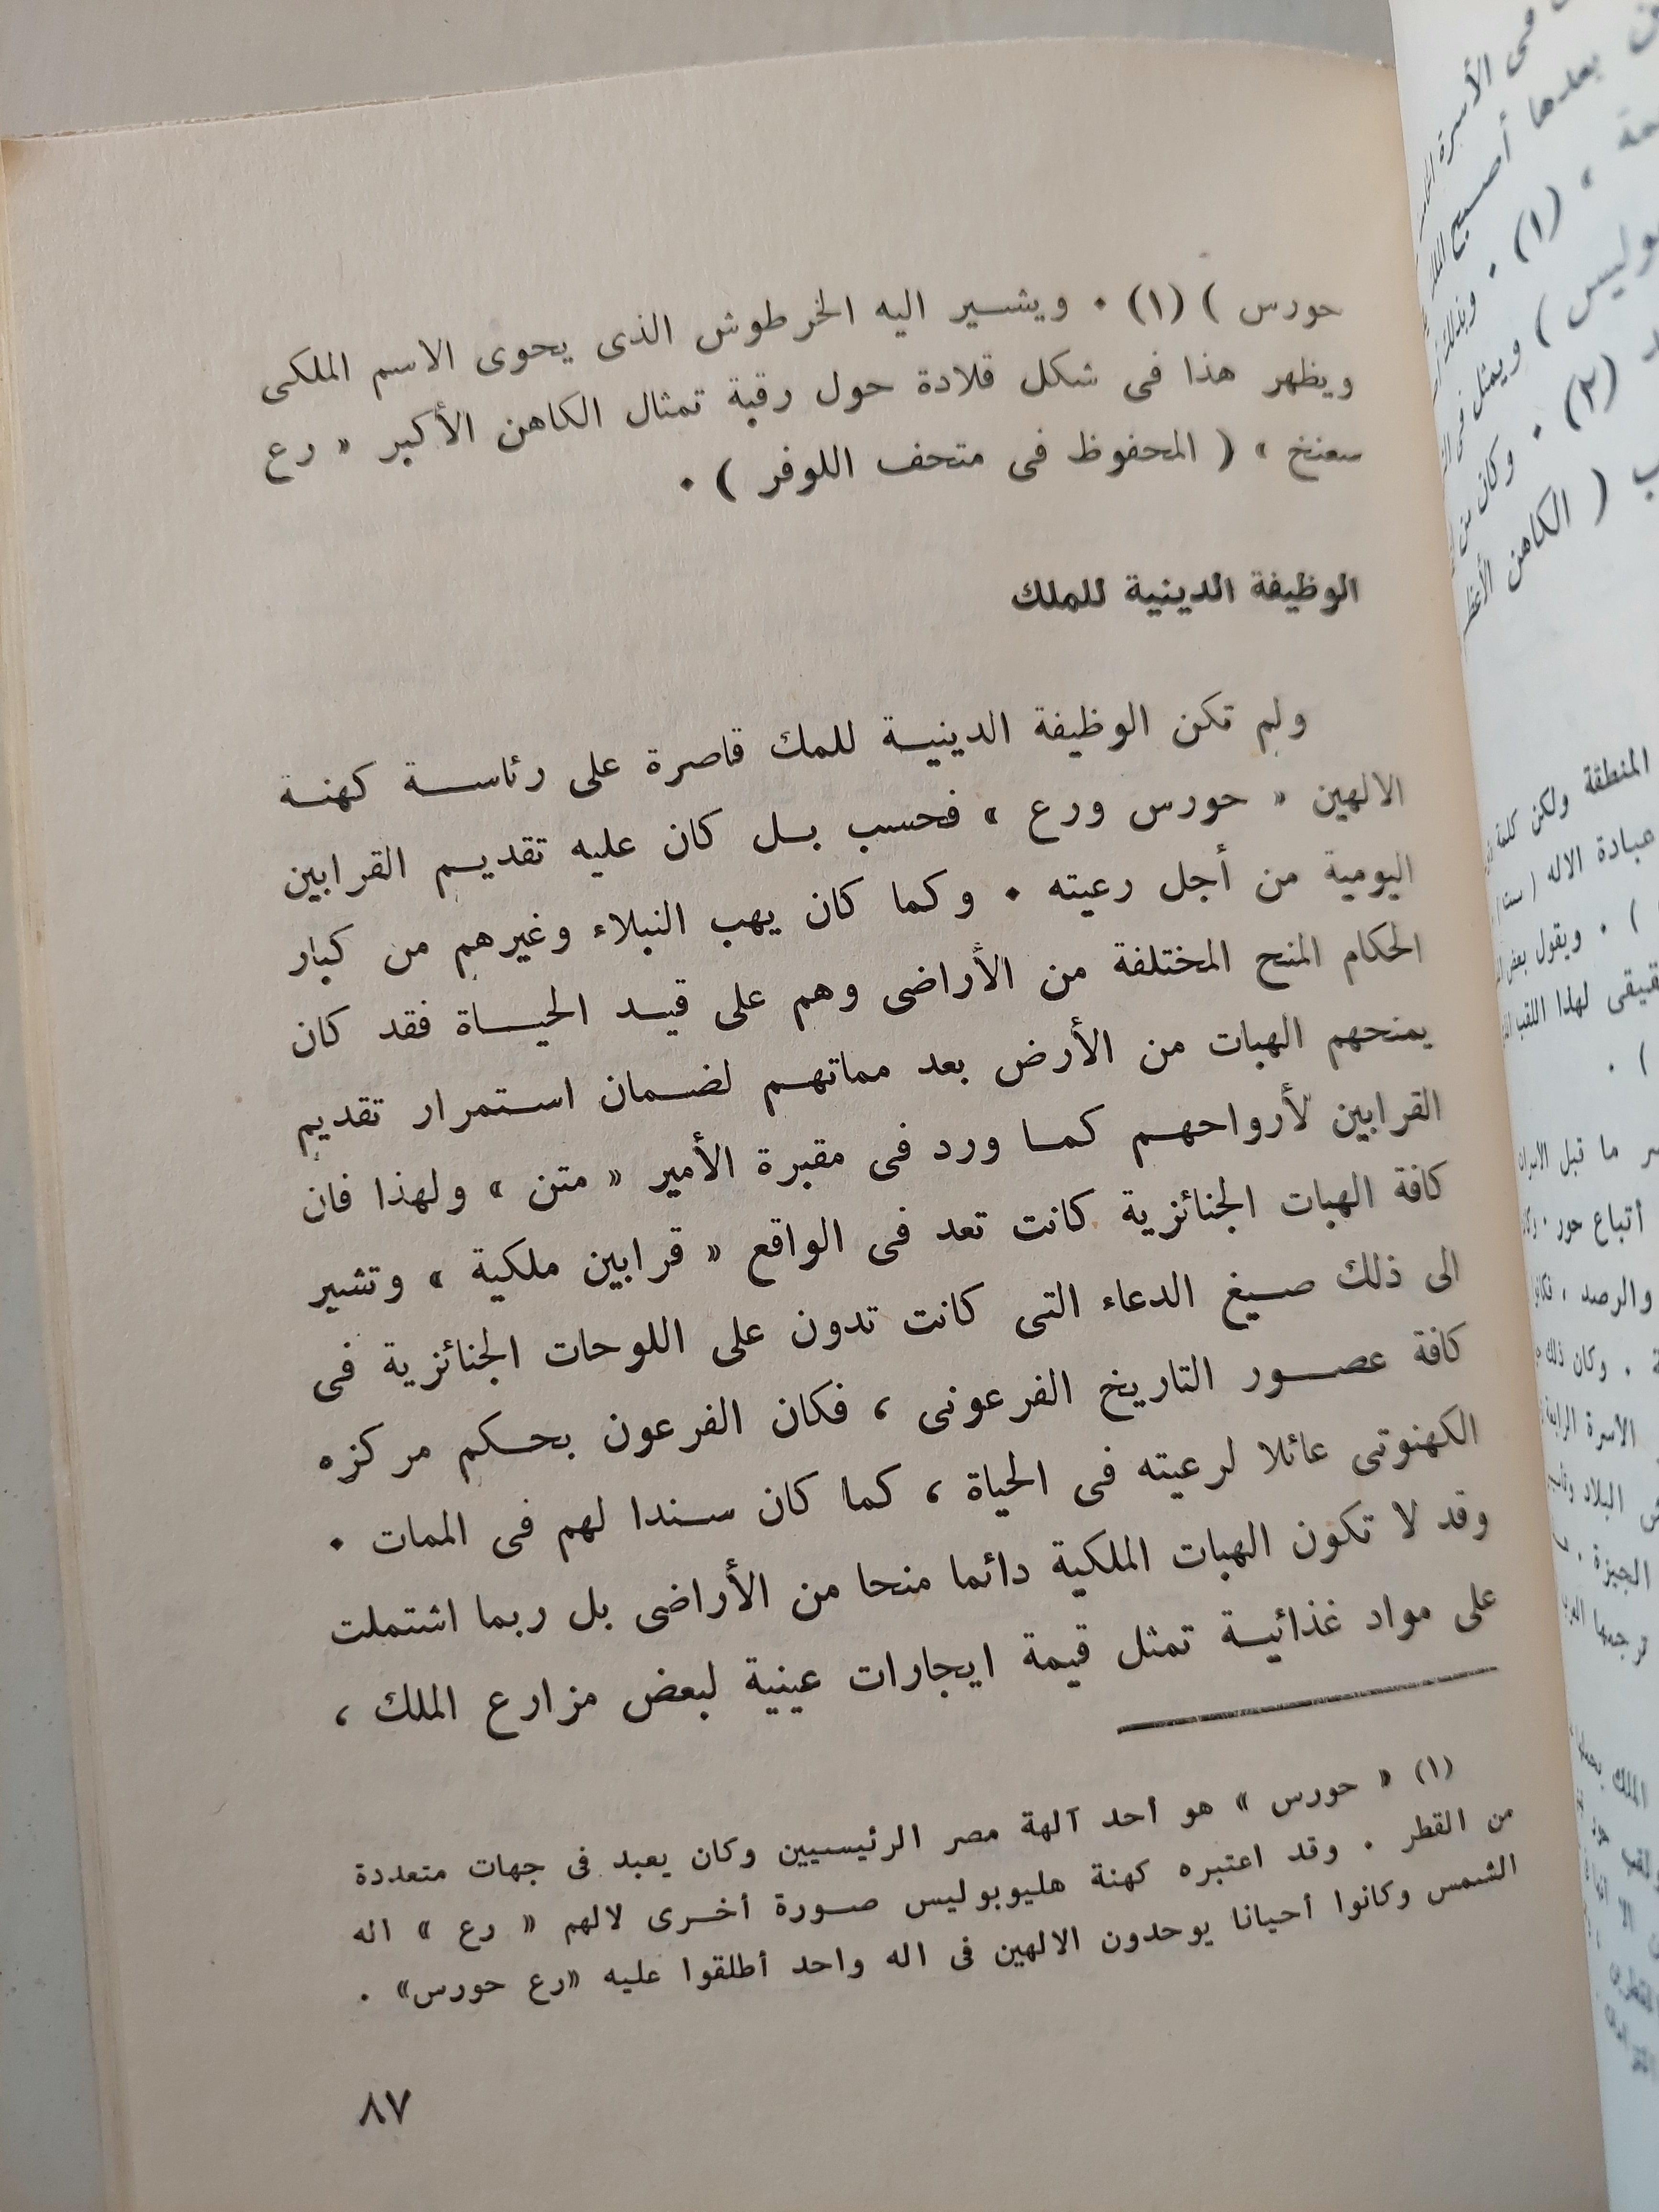 حورس ) (١) . ويشير اليه الخرطوش الذى يحوى الاسم الملكى
ويظهر هذا فى شكل قلادة حول رقبة تمثال الكاهن الأكبر « رع
سعنخ » ( المحفوظ فى متحف اللوفر ) .
الوظيفة الدينية للملك
ولم تكن الوظيفة الدينية للمك قاصرة على رئاسة كهنة
الالهين « حورس ورع » فحسب بل كان عليه تقديم القرابين
اليومية من أجل رعيته . وكما كان يهب النبلاء وغيرهم من كبار
الحكام المنح المختلفة من الأراضى وهم على قيد الحياة فقد كان
يمنحهم الهبات من الأرض بعد مماتهم لضمان استمرار تقديم
القرابين لأرواحهم كما ورد فى مقبرة الأمير « متن » ولهذا فان
كافة الهبات الجنائزية كانت تعد فى الواقع « قرابين ملكية » وتشير
الى ذلك صيغ الدعاء التى كانت تدون على اللوحات الجنائزية فى
كافة عصور التاريخ الفرعونى ، فكان الفرعون بحكم مركزه
الكهنوتى عائلا لرعيته فى الحياة ، كما كان سندا لهم فى الممات .
وقد لا تكون الهبات الملكية دائما منحا من الأراضى بل ربما اشتملت
على مواد غذائية تمثل قيمة ايجارات عينية لبعض مزارع الملك ،
(١) « حورس » هو أحد آلهة مصر الرئيسيين وكان يعبد فى جهات متعددة
من القطر . وقد اعتبره كهنة هليوبوليس صورة أخرى لالهم « رع » اله
الشمس وكانوا أحيانا يوحدون الالهين فى اله واحد أطلقوا عليه «رع حورس» .
٨٧
فى الأسرة
بعدها أصبح
(١) .
ويمثل فى
(٢) . وكان من
( الكاهن الأعظم
المنطقة ولكن كلمة
عبادة الاله ( ست
) . ويقول بعض
لهذا اللقب
) .
ما قبل
أتباع حور . وكان
والرصد ، فكانوا
. وكان ذلك
الأسرة الرابعة
البلاد
الجيزة .
الملك